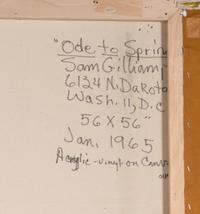 "Ode to Sprin
Sam Gilliam
6124 N. Dakota
Wash. 11, D.C
56 X 56"
Jan. 1965
Acrylic-vinyl on Canv